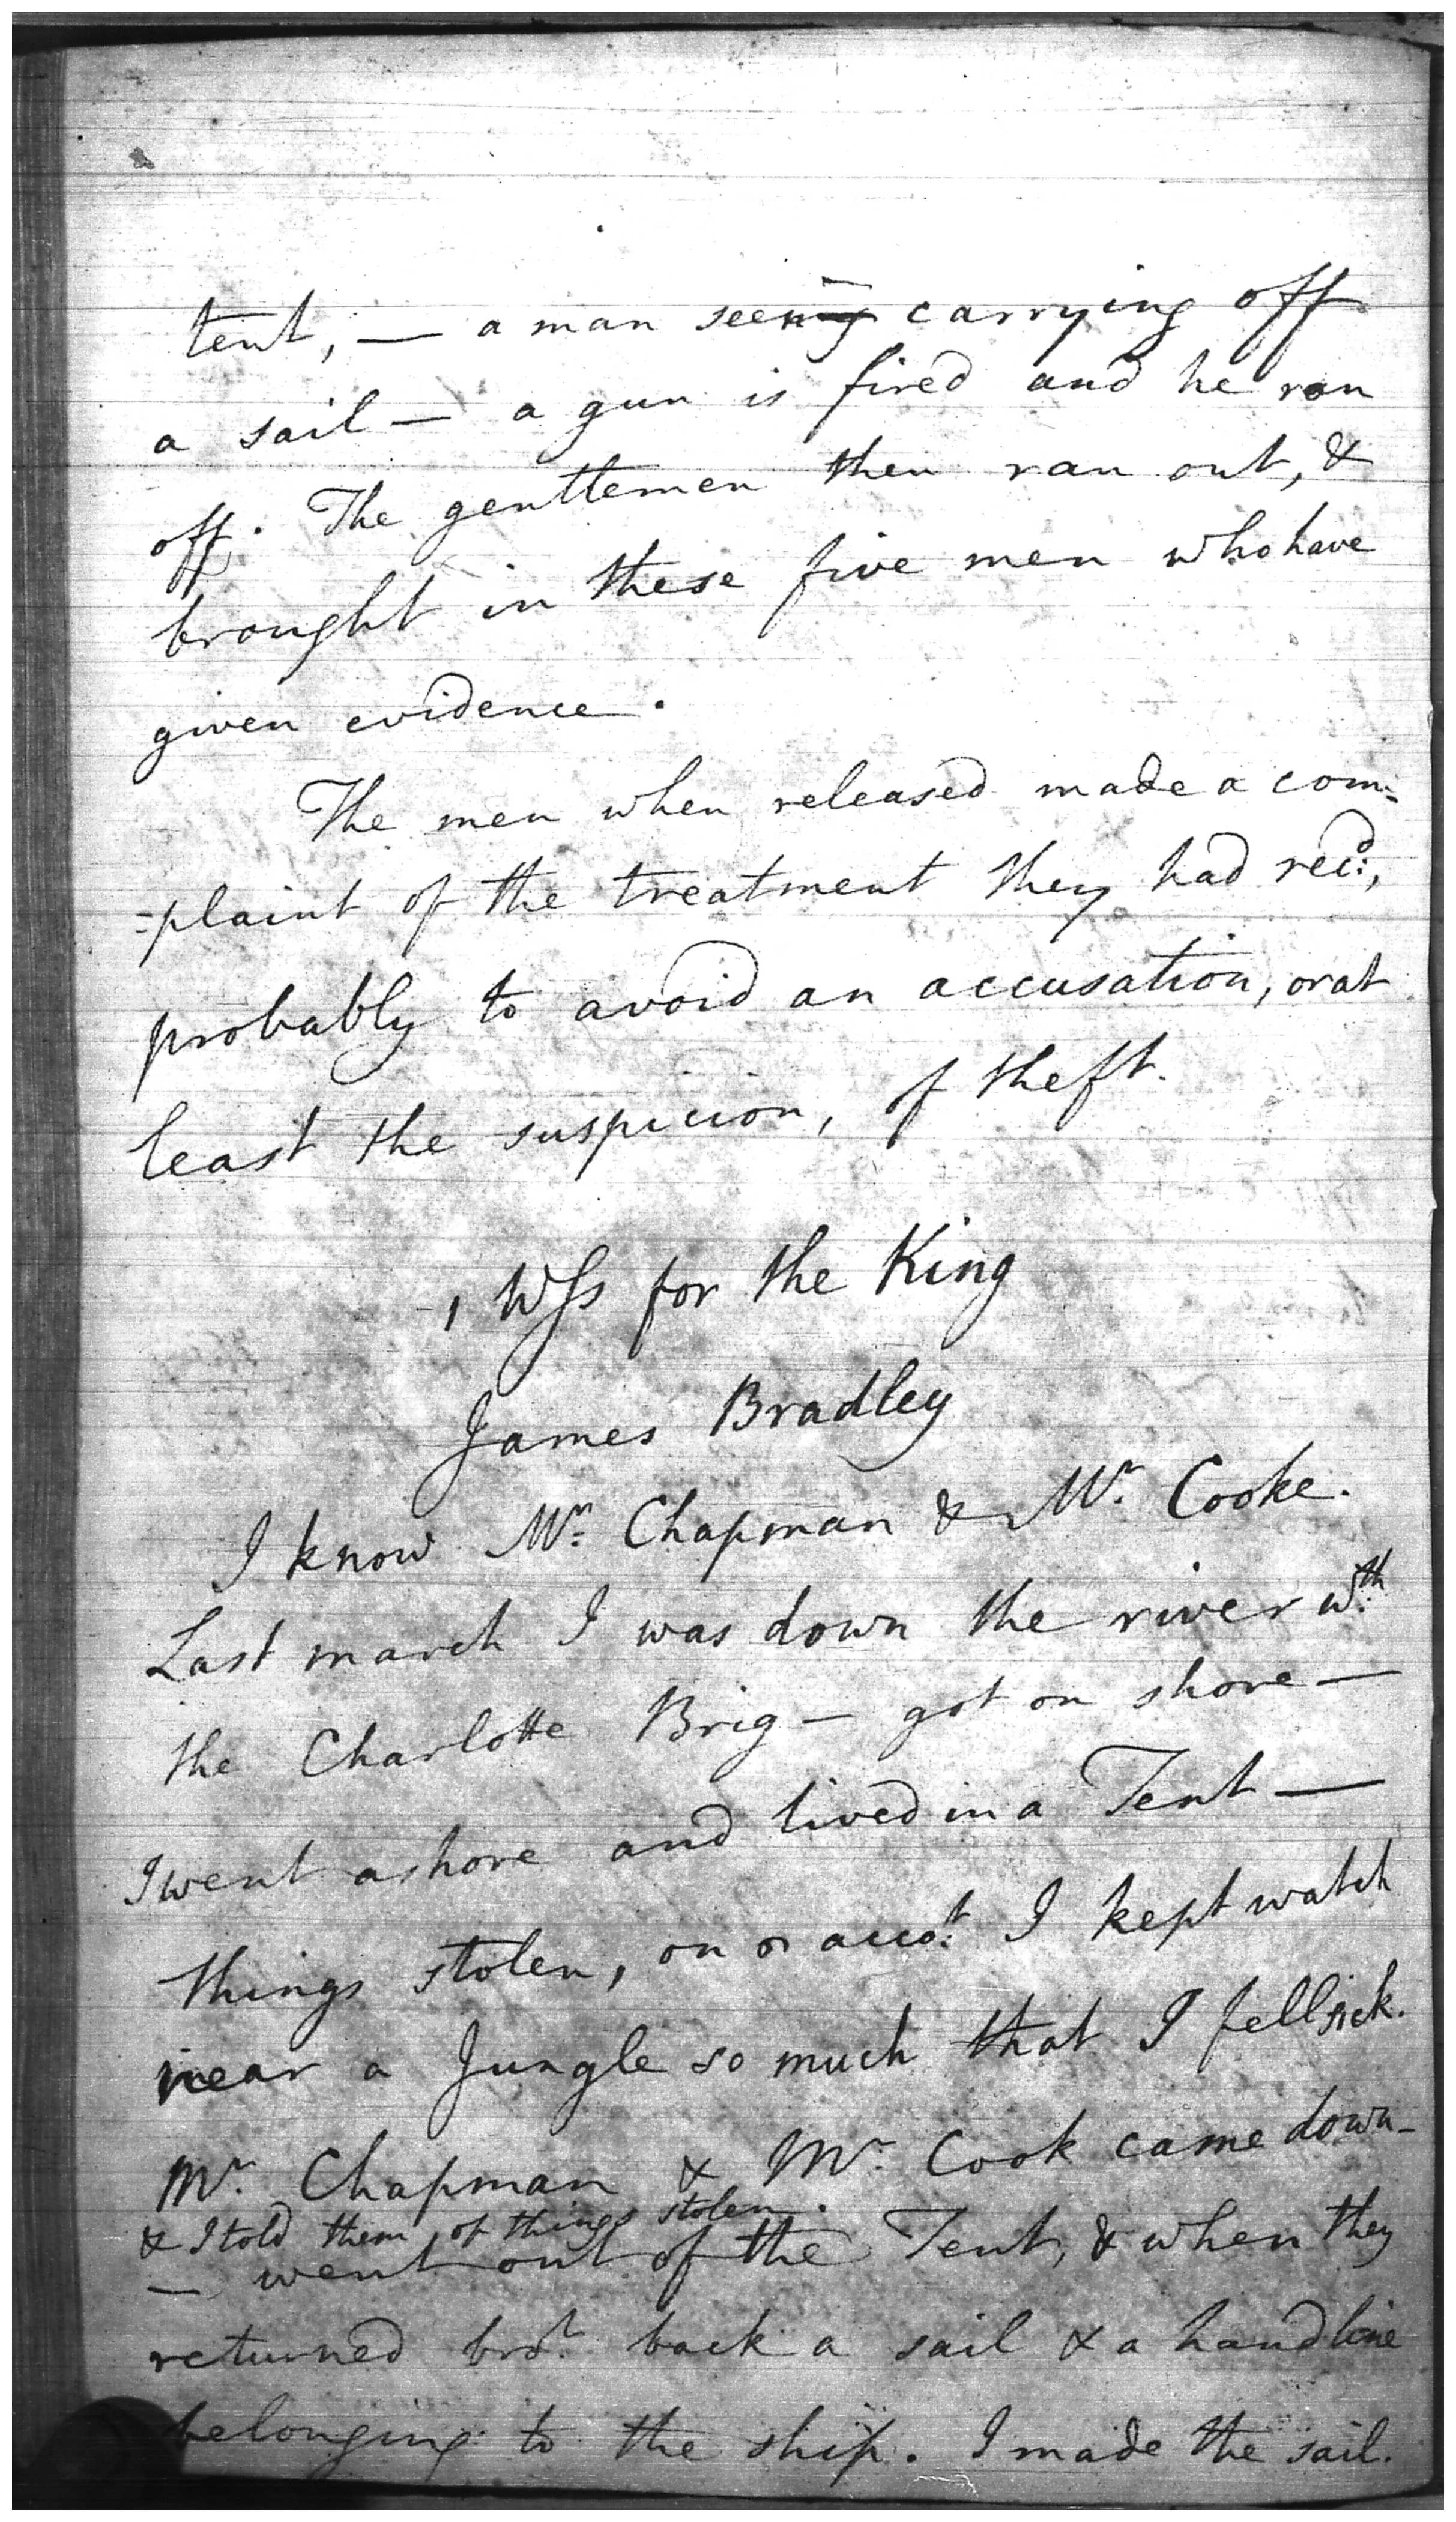 tent, — a man seen carrying off
a sail — a gun is fired and he ran
off. The gentlemen then ran out, &
brought in these five men who have
given evidence.
The men when released made a com=
=plaint of the treatment they had recd:,
probably to avoid an accusation, or at
least the suspicion, of theft.
1 Wss for the King
James Bradley
I know Mr. Chapman & Mr. Cooke.
Last march I was down the river wth
the Charlotte Brig — got on shore —
I went ashore and lived in a Tent —
things stolen, on accot. I kept watch
near a Jungle so much that I fell sick.
Mr. Chapman & Mr. Cook came down —
& I told them of things stolen.
— went out of the Tent, & when they
returned brot. back a sail & a hand line
belonging to the ship. I made the sail.